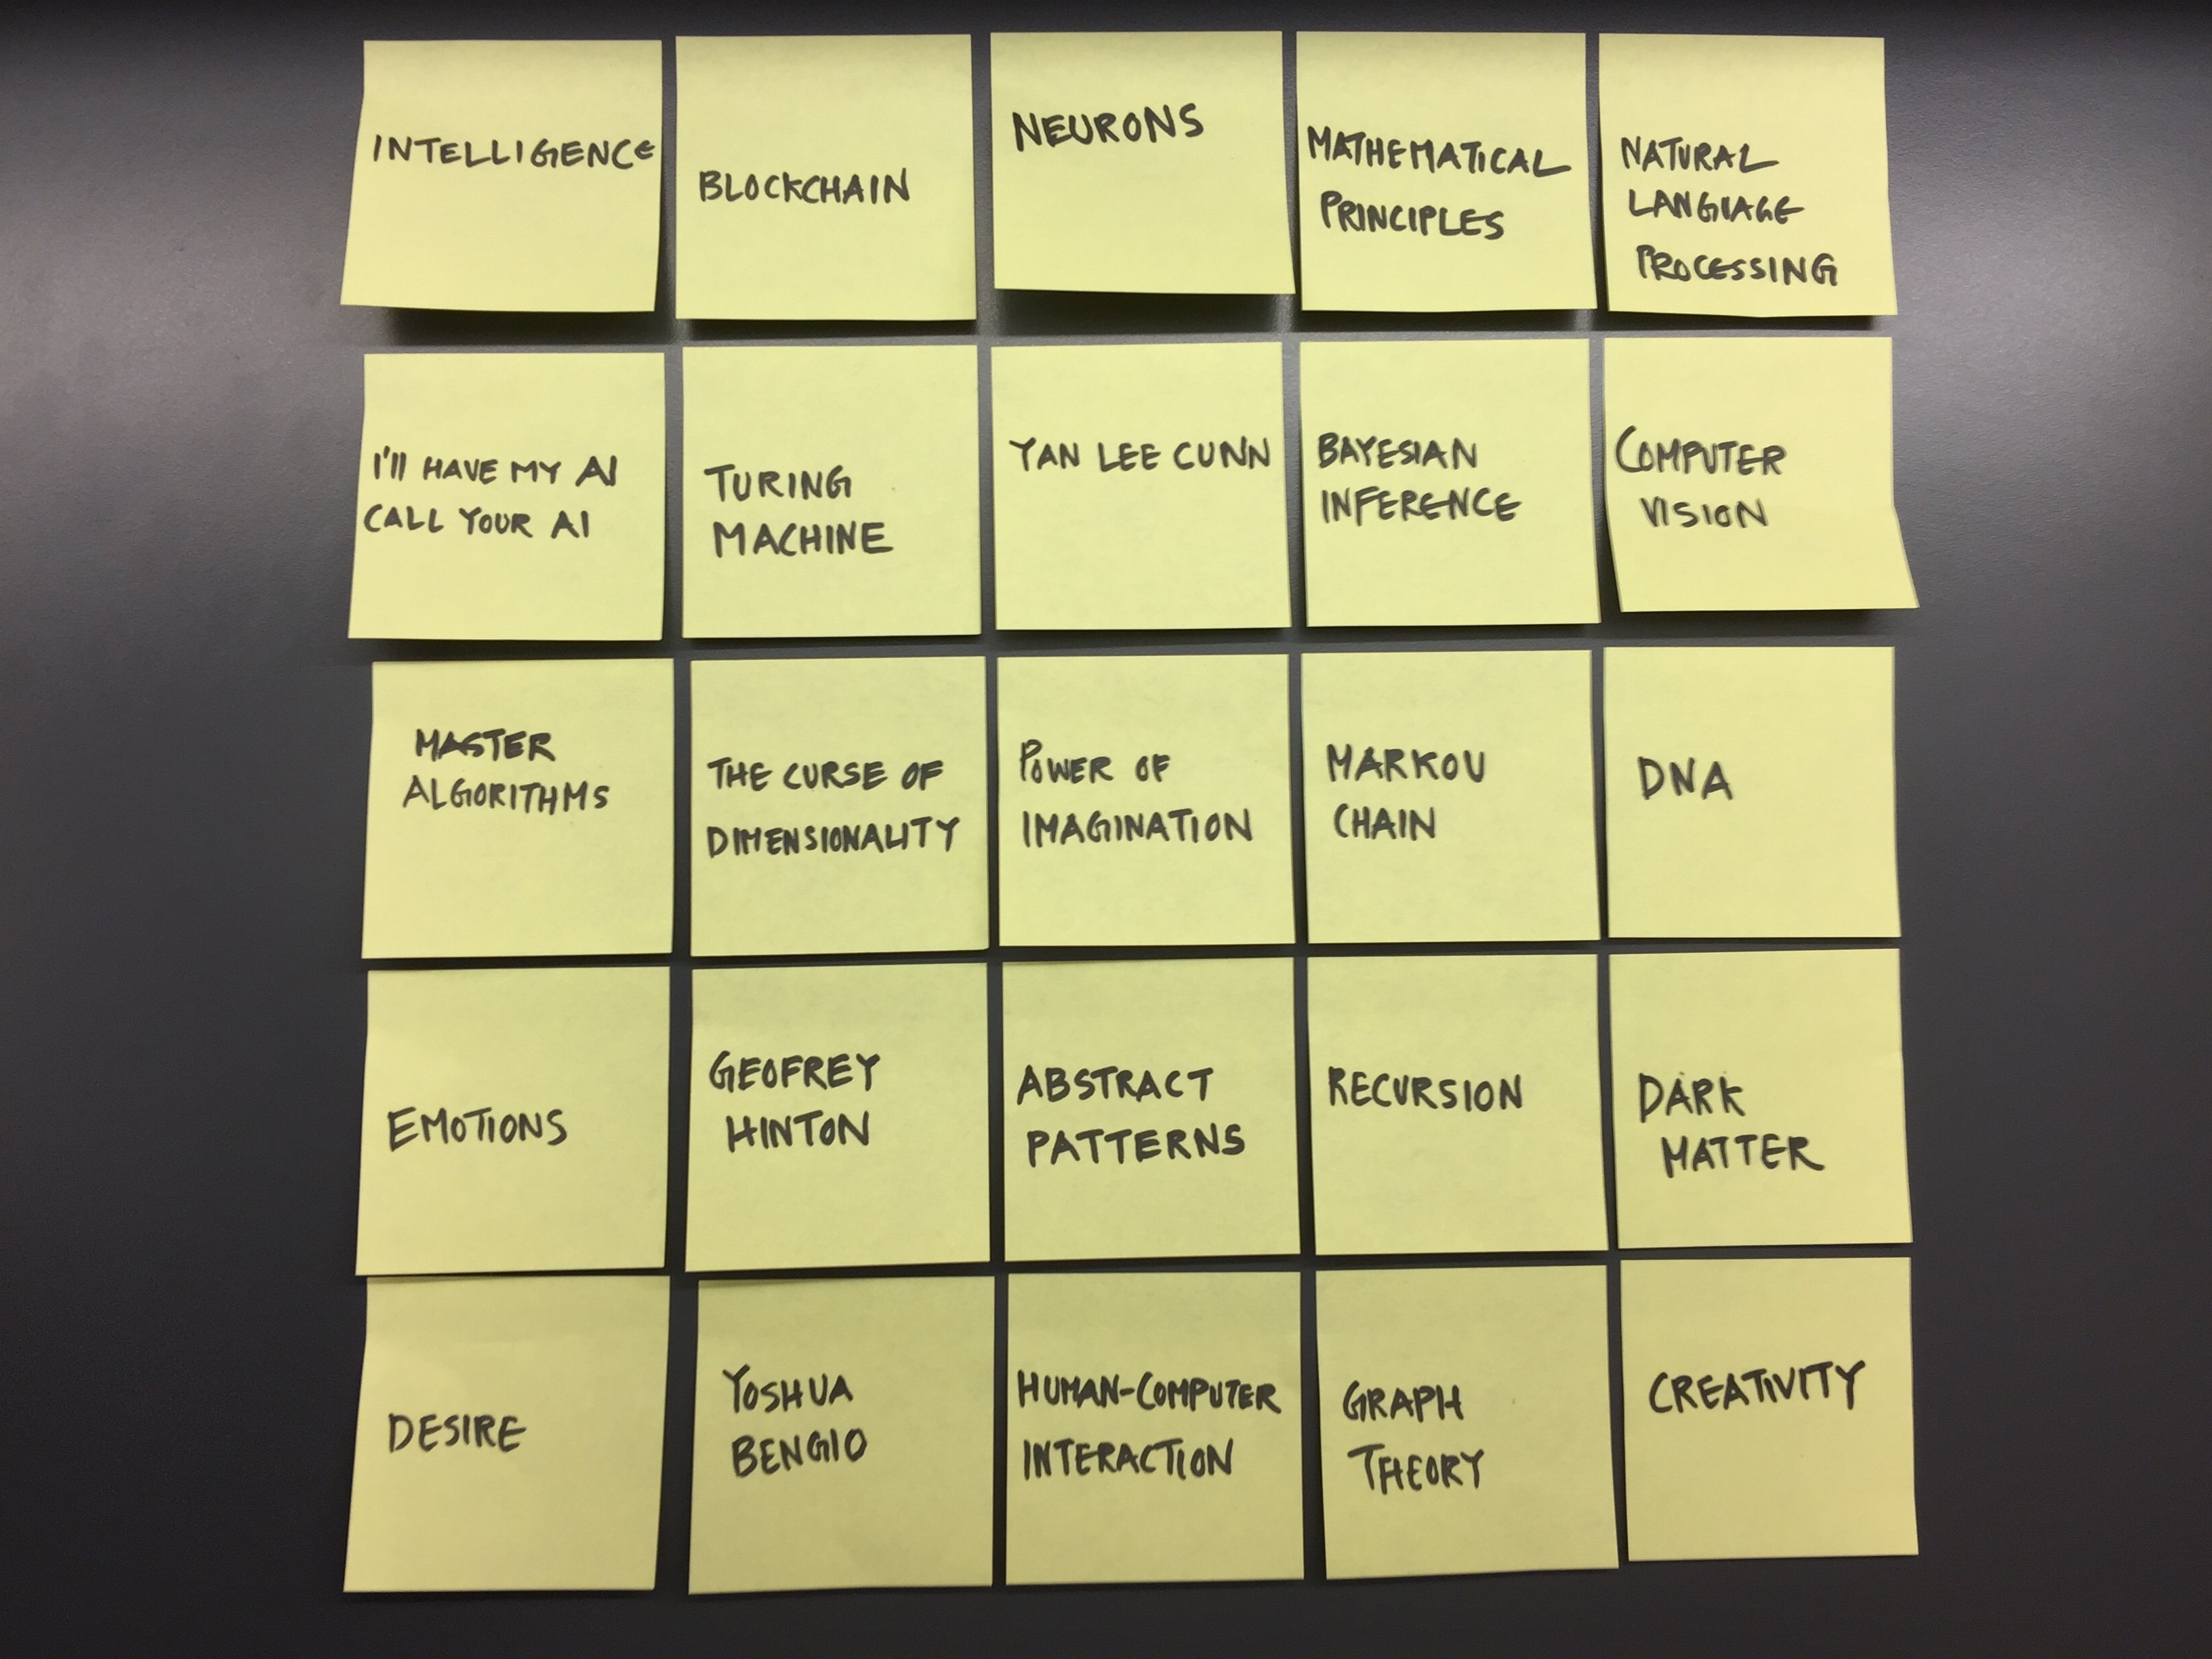 INTELLIGENCE
BLOCKCHAIN
NEURONS
MATHEMATICAL
PRINCIPLES
NATURAL
LANGUAGE
PROCESSING
I'll HAVE MY AI
CALL YOUR AI
TURING
MACHINE
YAN LEE CUNN
BAYESIAN
INFERENCE
COMPUTER
VISION
MASTER
ALGORITHMS
THE CURSE OF
DIMENSIONALITY
POWER OF
IMAGINATION
MARKOV
CHAIN
DNA
EMOTIONS
GEOFREY
HINTON
ABSTRACT
PATTERNS
RECURSION
DARK
MATTER
DESIRE
YOSHUA
BENGIO
HUMAN-COMPUTER
INTERACTION
GRAPH
THEORY
CREATIVITY